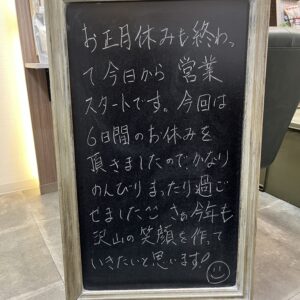 お正月休みも終わっ
て今日から営業
スタートです。今回は
6日間のお休みを
頂きましたのでかなり
のんびりまったり過ご
せました^^ さぁ今年も
沢山の笑顔を作って
いきたいと思います!